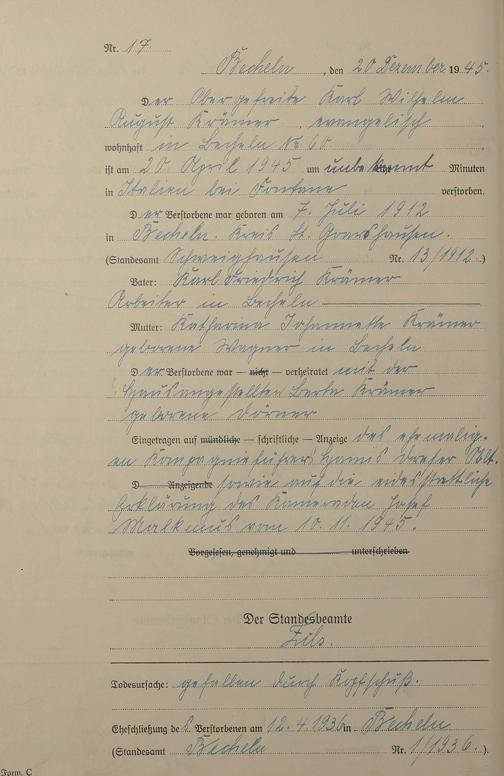 Nr. 17.
Becheln, den 20 Dezember 1945.
Der Obergefreite Karl Wilhelm
August Krämer, evangelisch
wohnhaft in Becheln No 60
ist am 20 April 1945 um unbekannt Minuten
in Italien bei Fontane verstorben.
Der Verstorbene war geboren am 7. Juli 1912
in Becheln. Kreis St. Goarshausen.
(Standesamt Schweighausen Nr. 13/1912.)
Vater: Karl Friedrich Krämer
Arbeiter in Becheln
Mutter: Katharina Johannette Krämer
geborene Wagner in Becheln
Der Verstorbene war — nicht — verheiratet mit der
Hausangestellten Berta Krämer
geborene Dörner
Eingetragen auf mündliche — schriftliche — Anzeige des ehemalig-
en Kompagnieführers Hanns Dreher Oblt.
D Anzeigende sowie auf die eidesstattliche
Erklärung des Kameraden Josef
Malkmus vom 10.11.1945.
Vorgelesen, genehmigt und unterschrieben
Der Standesbeamte
Zils.
Todesursache: gefallen durch Kopfschuß.
Eheschließung des Verstorbenen am 12.4.1936 in Becheln
(Standesamt Becheln Nr. 1/1936.)
Form. C